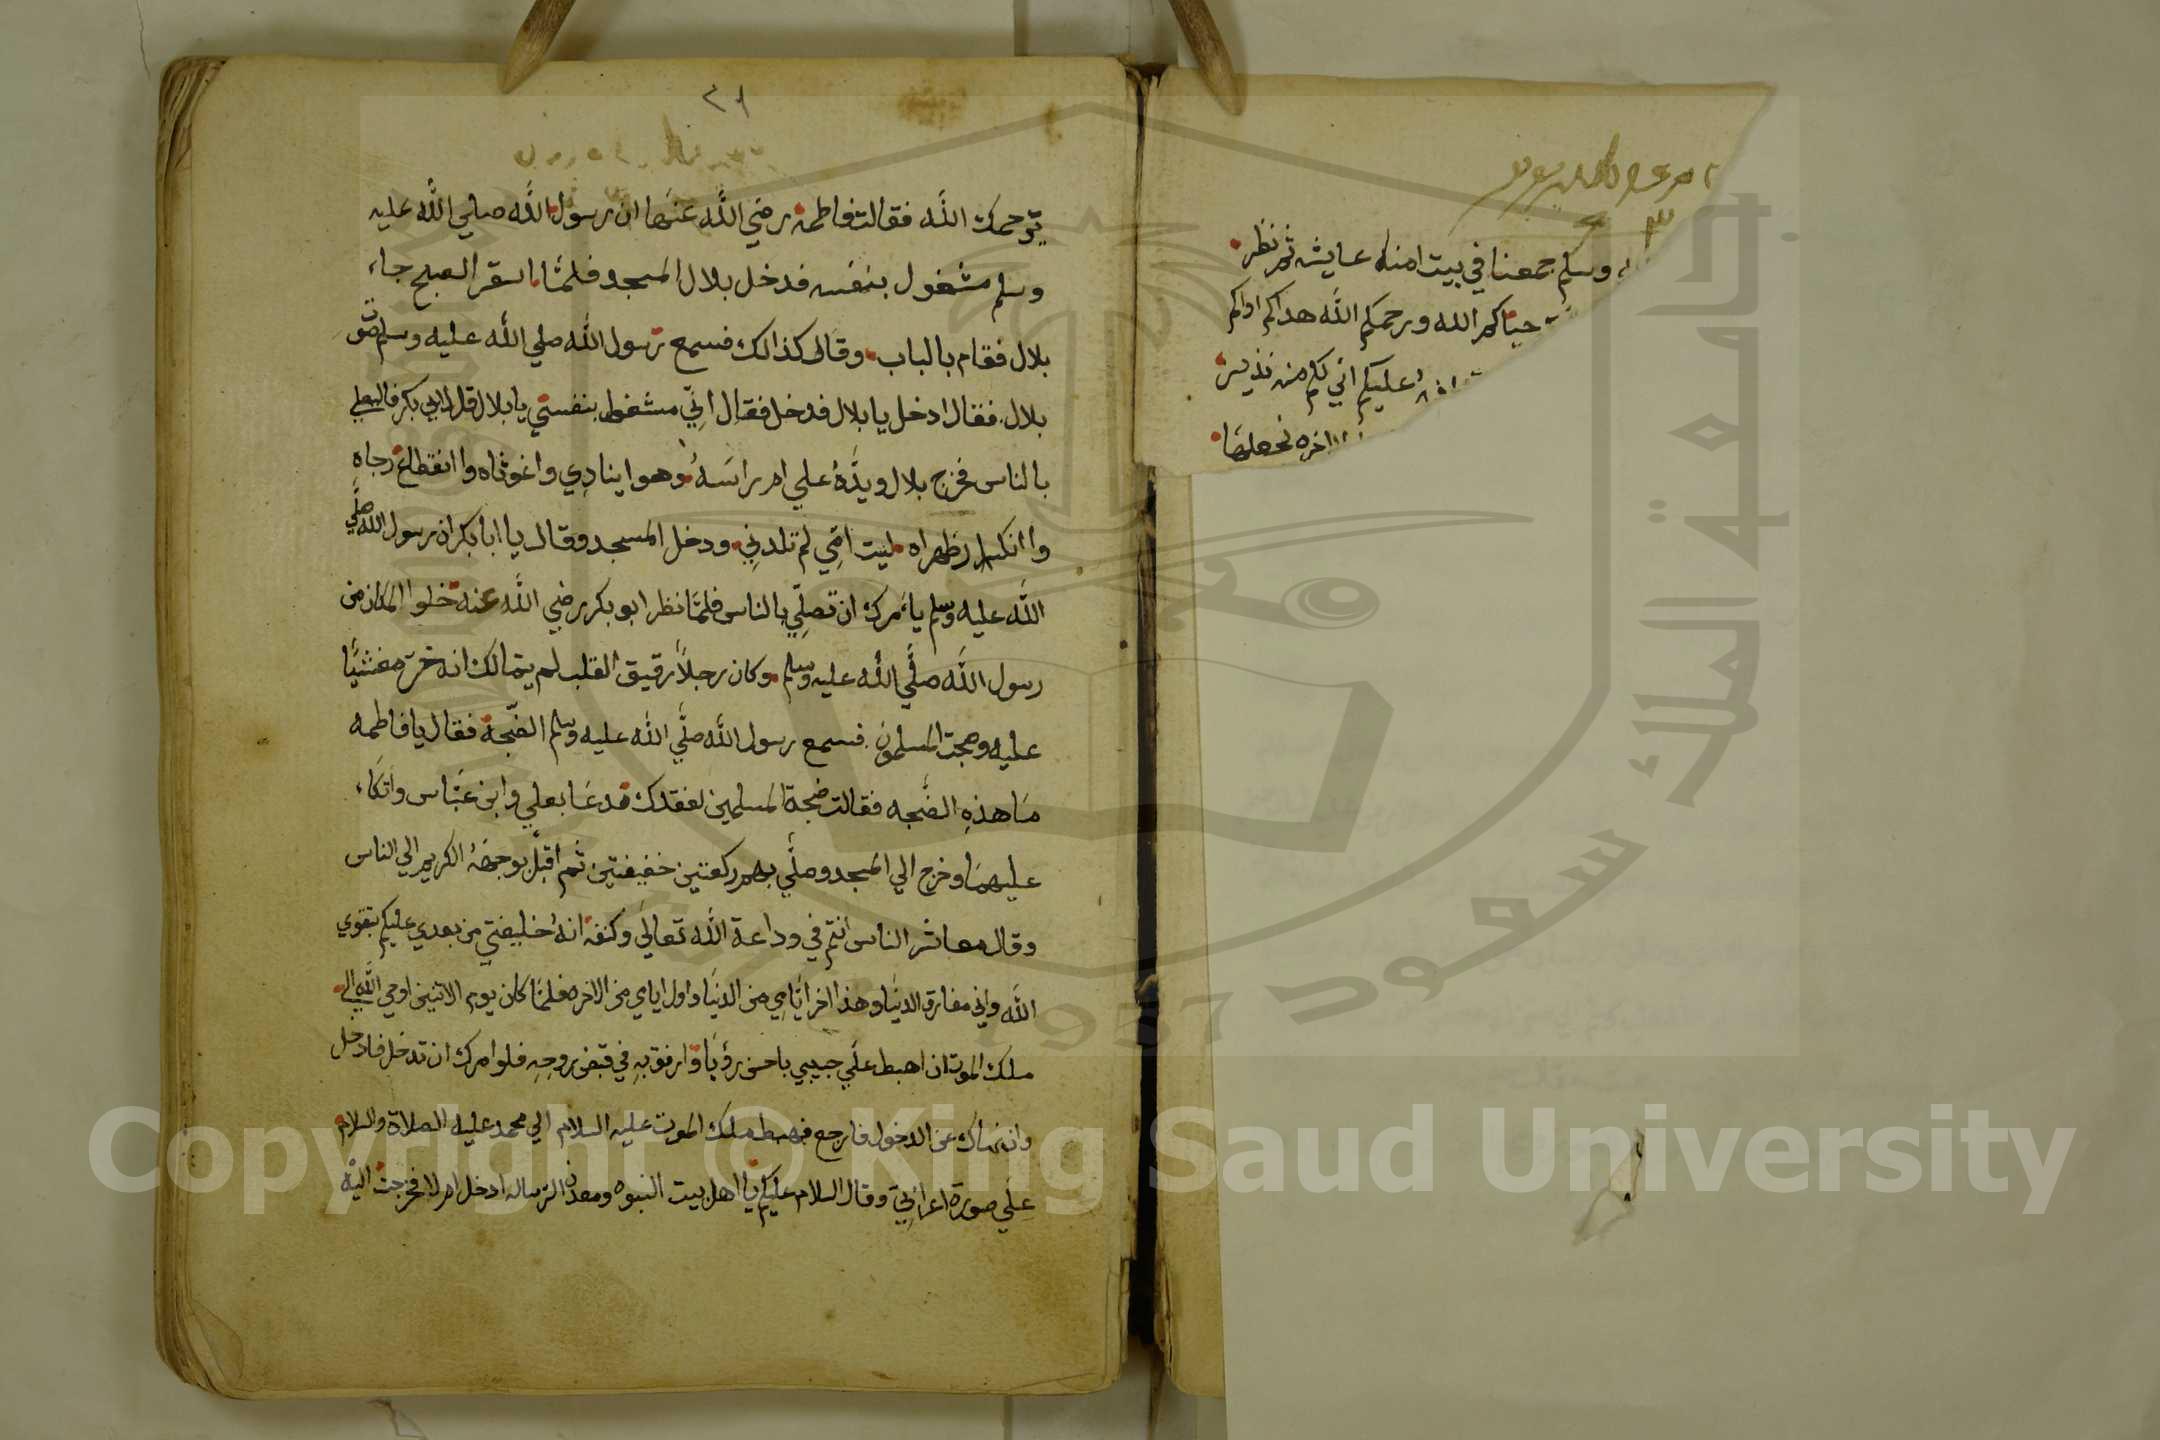 وسلم جمعنا في بيت امنا عايشه ثم نظر
حياكم الله ورحمكم الله هداكم اواكم
عليكم اني لكم منه نذير
الاخره نجعلها
٢٩
يرحمك الله فقالت فاطمه رضي الله عنها ان رسول الله صلي الله عليه
وسلم مشغول بنفسه فدخل بلال المسجد فلما اسفر الصبح جاء
بلال فقام بالباب وقال كذالك فسمع رسول الله صلي الله عليه وسلم صوت
بلال فقال ادخل يا بلال فدخل فقال اني مشغول بنفسي يا بلال قل لابي بكر فاليصلي
بالناس فخرج بلال ويده علي ام راسه وهوا ينادي واغوثاه واانقطاع رجاه
واانكسار ظهراه ليت امي لم تلدني ودخل المسجد وقال يا ابا بكر ان رسول الله صلي
الله عليه وسلم ياءمرك ان تصلي بالناس فلما نظر ابو بكر رضي الله عنه خلوا المكان من
رسول الله صلي الله عليه وسلم وكان رجلا رقيق القلب لم يتمالك انه خر مغشيا
عليه وضجت المسلمون فسمع رسول الله صلي الله عليه وسلم الضجة فقال يا فاطمه
ما هذه الضجه فقالت ضجة المسلمين لفقدك فدعا بعلي وابن عباس واتكاء
عليهما وخرج الي المسجد وصلي بهم ركعتين خفيفتين ثم اقبل بوجهه الكريم الي الناس
وقال معاشر الناس انتم في وداعة الله تعالي وكنفه انه خليفتي من بعدي عليكم بتقوي
الله واني مفارق الدنيا وهذا اخر ايامي من الدنيا واول ايامي من الاخره فلما كان يوم الاثنين اوحي الله الي
ملك الموت ان اهبط علي حبيبي باحسن رؤيا وارفق به في قبض روحه فلو امرك ان تدخل فادخل
وان نهاك عن الدخول فارجع فهبط ملك الموت عليه السلام الي محمد عليه الصلاة والسلام
علي صورة اعرابي وقال السلام عليكم يا اهل بيت النبوه ومعدن الرساله ادخل ام لا فخرجت اليه
جامعة الملك سعود
1957
Copyright © King Saud University